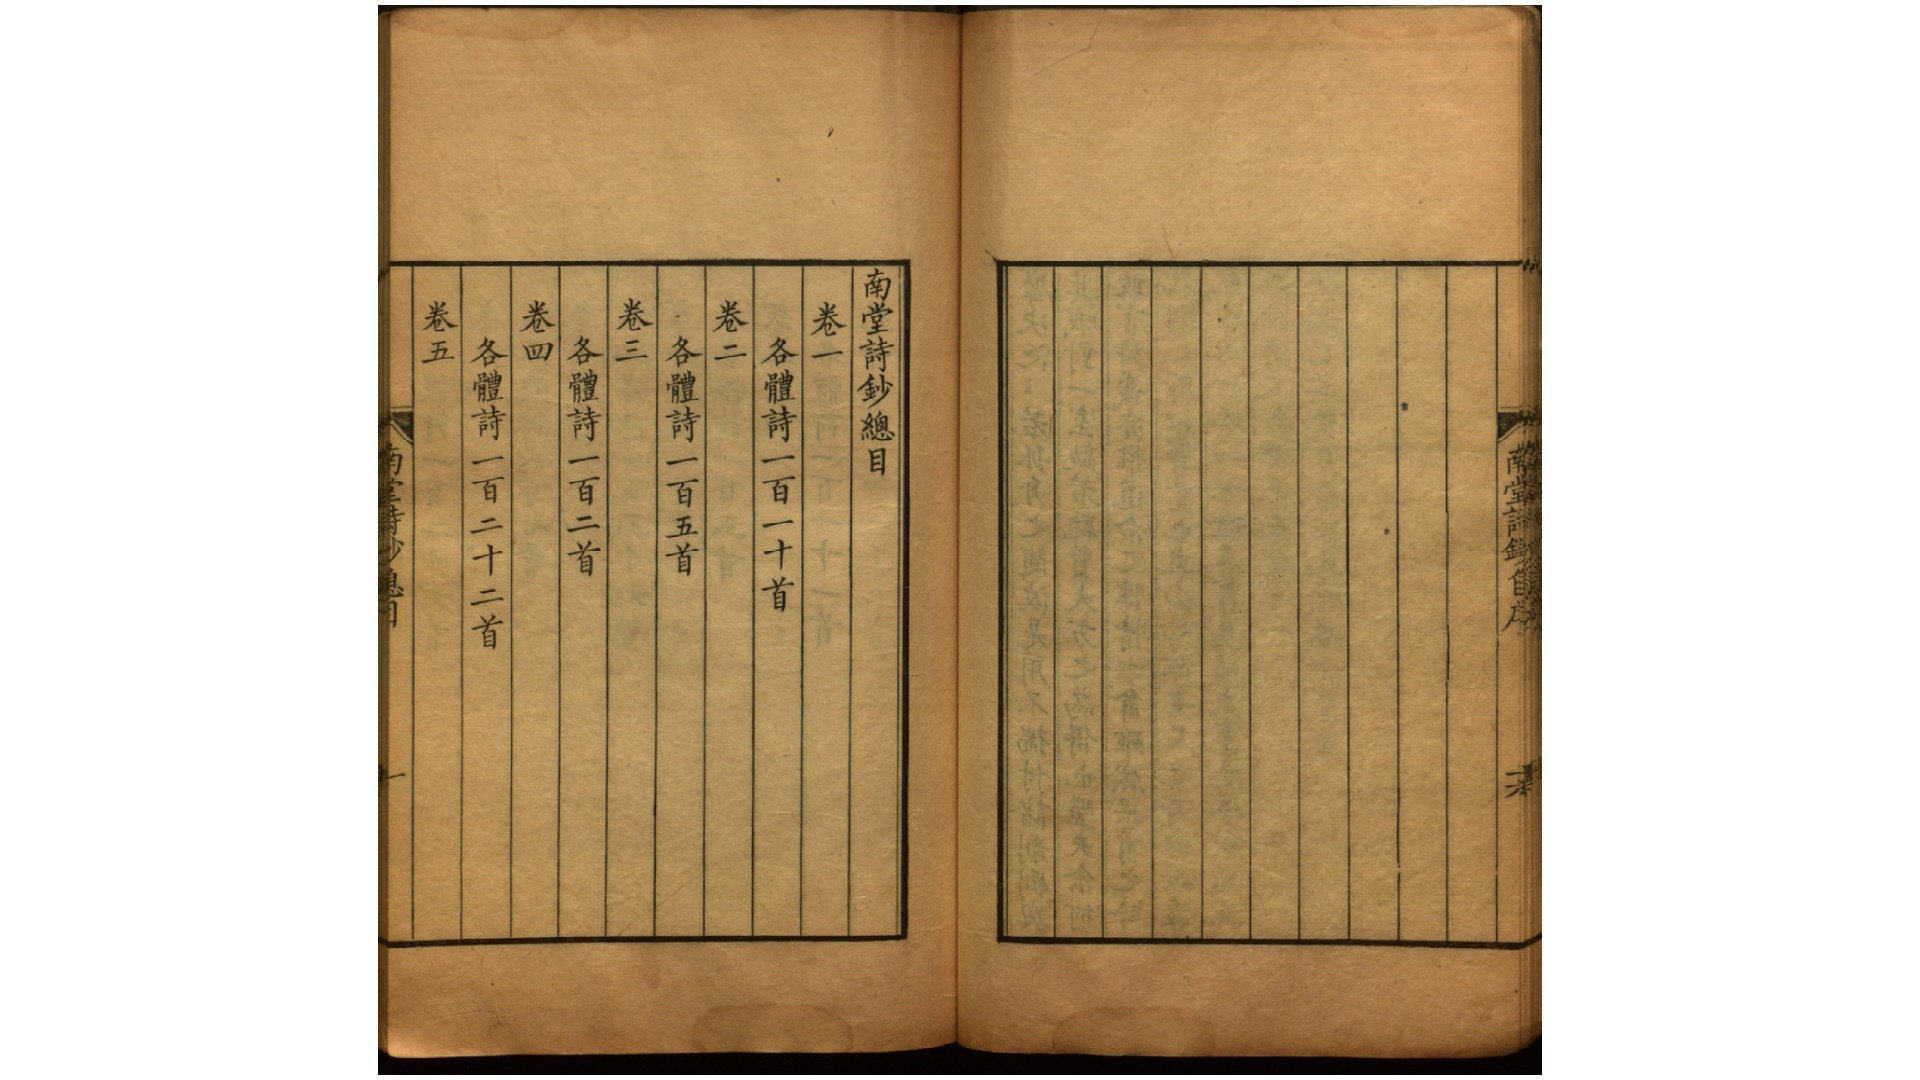 南堂詩鈔自序
南堂詩鈔總目
卷一
各體詩一百一十首
卷二
各體詩一百五首
卷三
各體詩一百二首
卷四
各體詩一百二十二首
卷五
南堂詩鈔總目
一